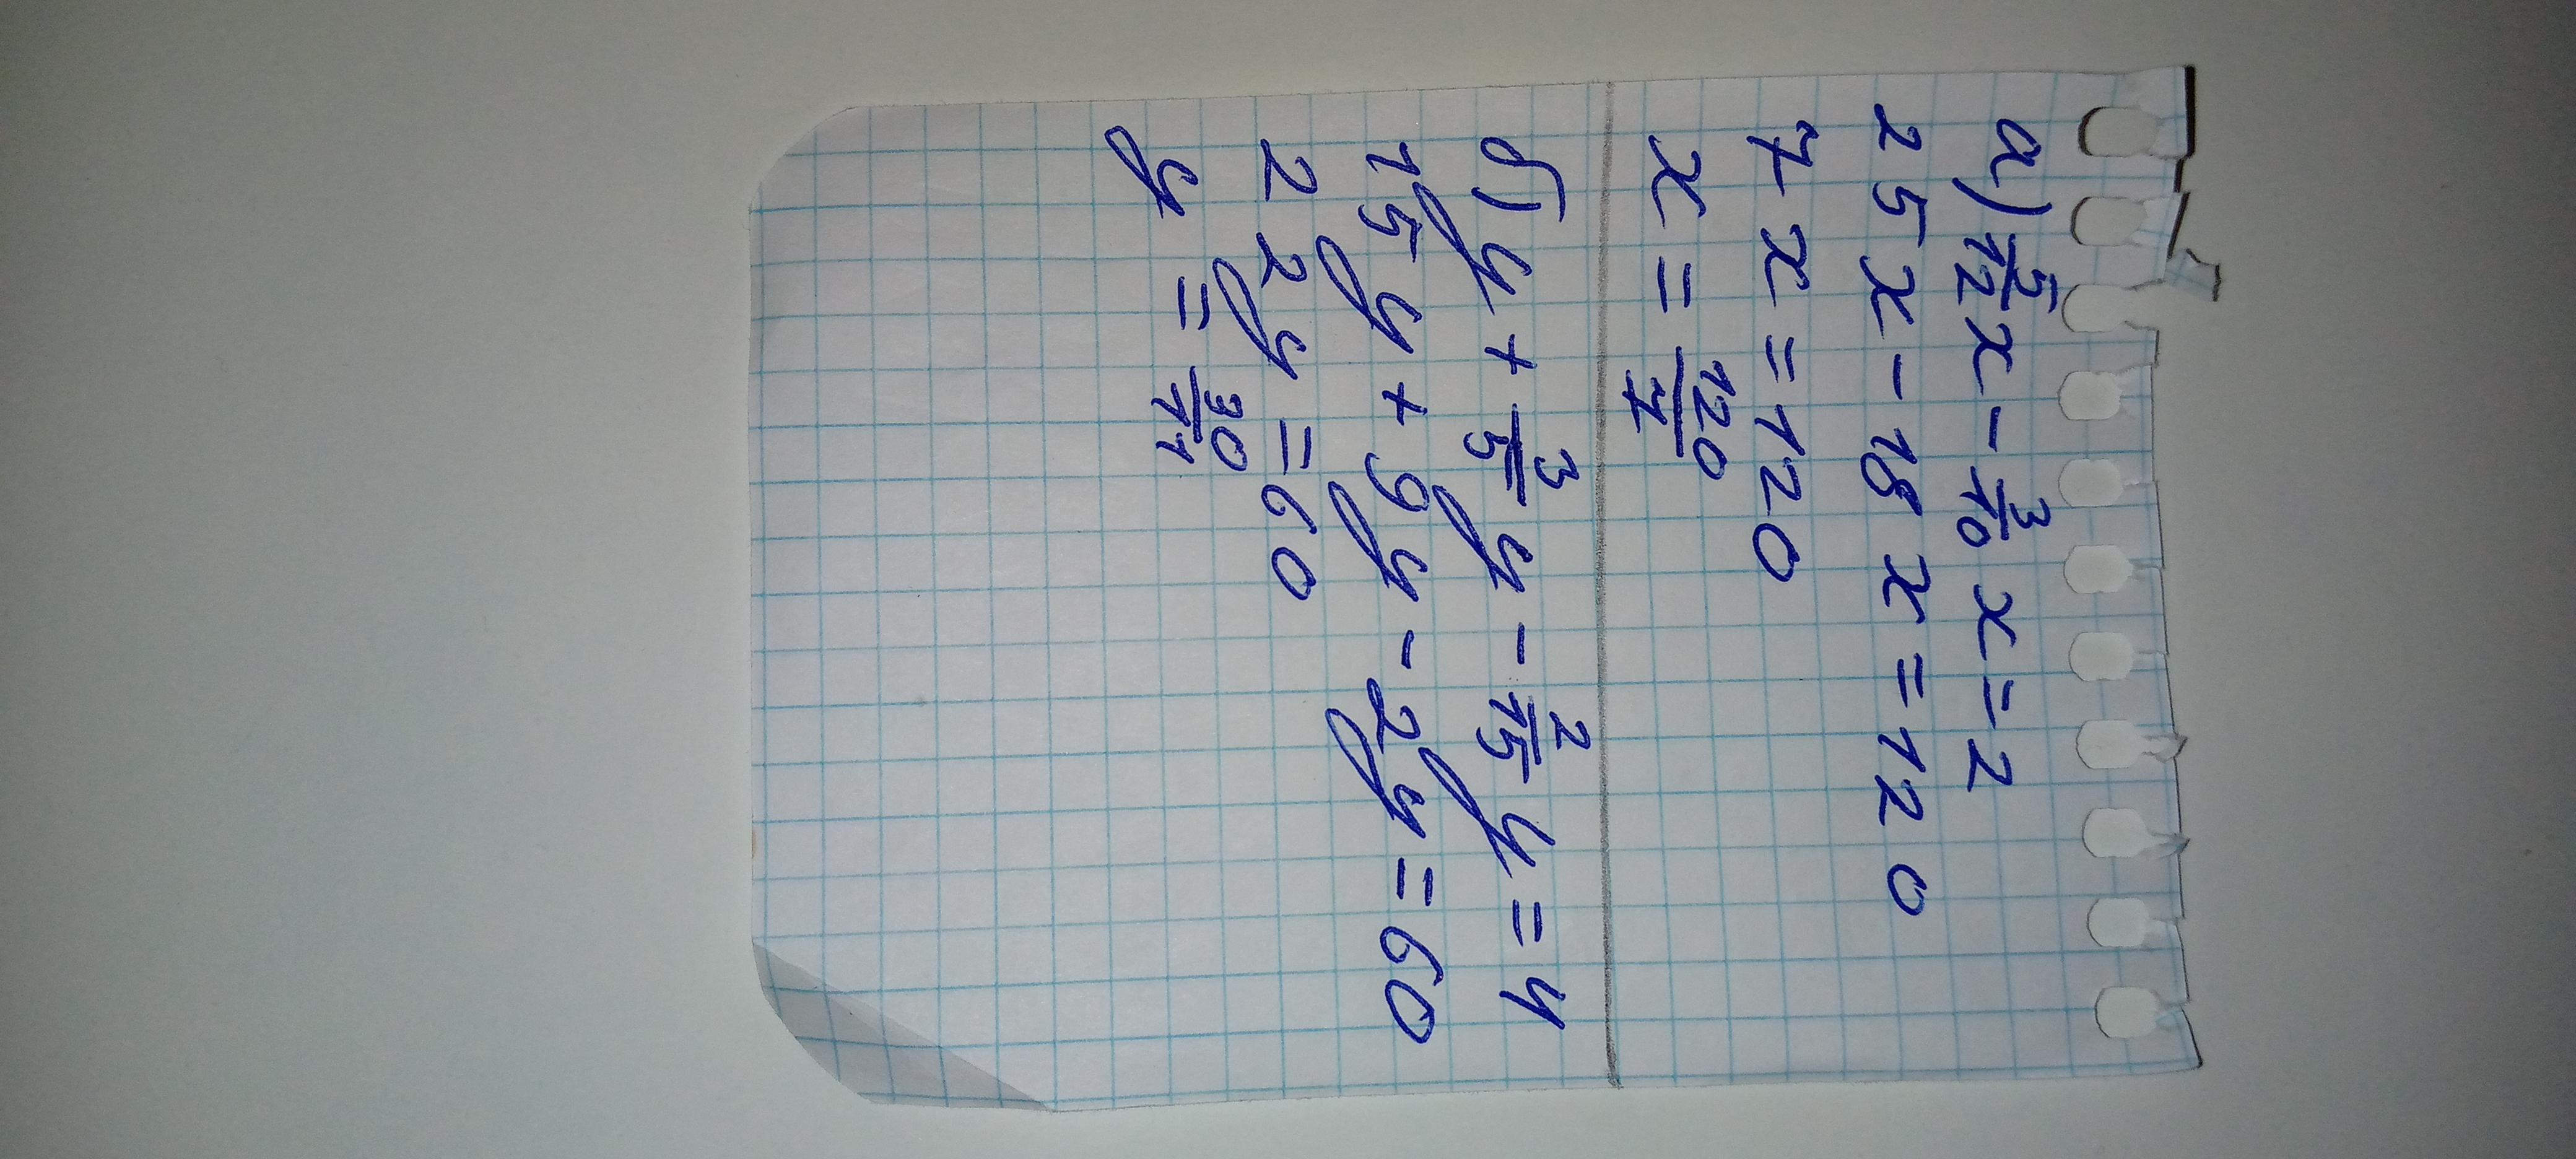 а) 5/12 x - 3/10 x = 2
25x - 18x = 120
7x = 120
x = 120/7
б) y + 3/5 y - 2/15 y = 4
15y + 9y - 2y = 60
22y = 60
y = 30/11